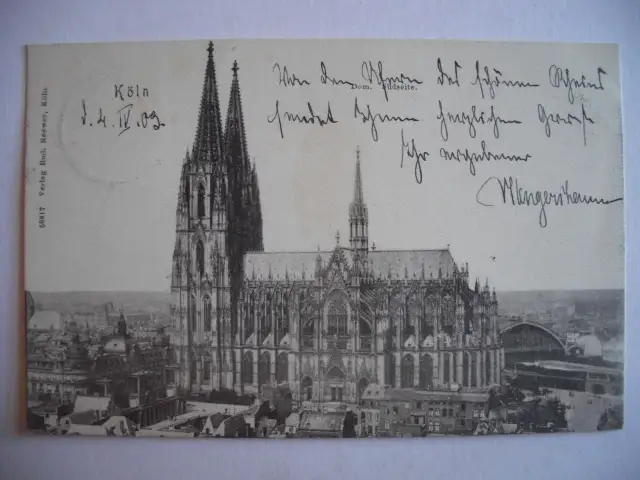 Köln
d. 4. IV 03.
Dom. Südseite.
Von den Ufern des schönen Rheins
sendet Ihnen herzlichen Gruß
Ihr ergebener
56817 Verlag Rud. Roemer, Köln.